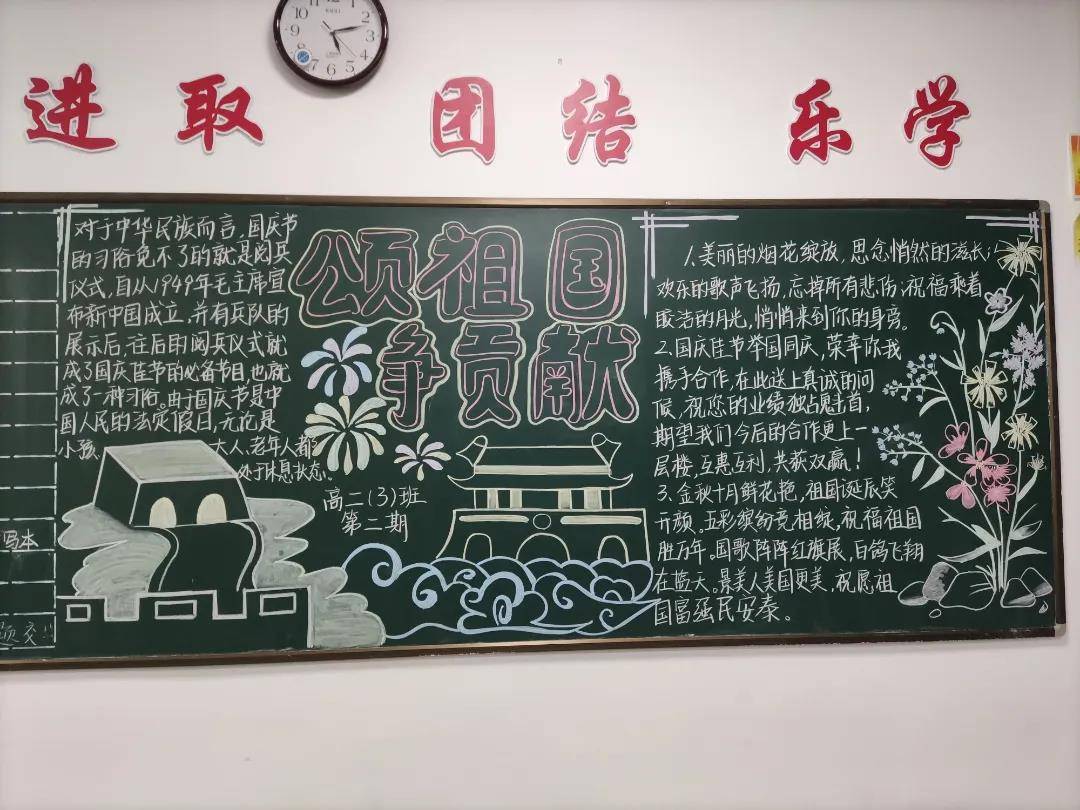 进取 团结 乐学
对于中华民族而言，国庆节
的习俗免不了的就是阅兵
仪式，自从1949年毛主席宣
布新中国成立，并有兵队的
展示后，往后的阅兵仪式就
成了国庆佳节的必备节目也就
成了一种习俗。由于国庆节是中
国人民的法定假日，无论是
小孩、大人、老年人都
处于休息状态。
颂祖国
争贡献
高二(3)班
第二期
1.美丽的烟花绽放，思念悄然的滋长；
欢乐的歌声飞扬，忘掉所有悲伤；祝福乘着
皎洁的月光，悄悄来到你的身旁。
2.国庆佳节举国同庆，荣幸你我
携手合作，在此送上真诚的问
候，祝您的业绩独占鬼首，
期望我们今后的合作更上一
层楼，互惠互利，共获双赢！
3.金秋十月鲜花艳，祖国诞辰笑
开颜。五彩缤纷竞相绽，祝福祖国
胜万年。国歌阵阵红旗展，白鸽飞翔
在蓝天，景美人美国更美，祝愿祖
国富强民安泰。
写本
交